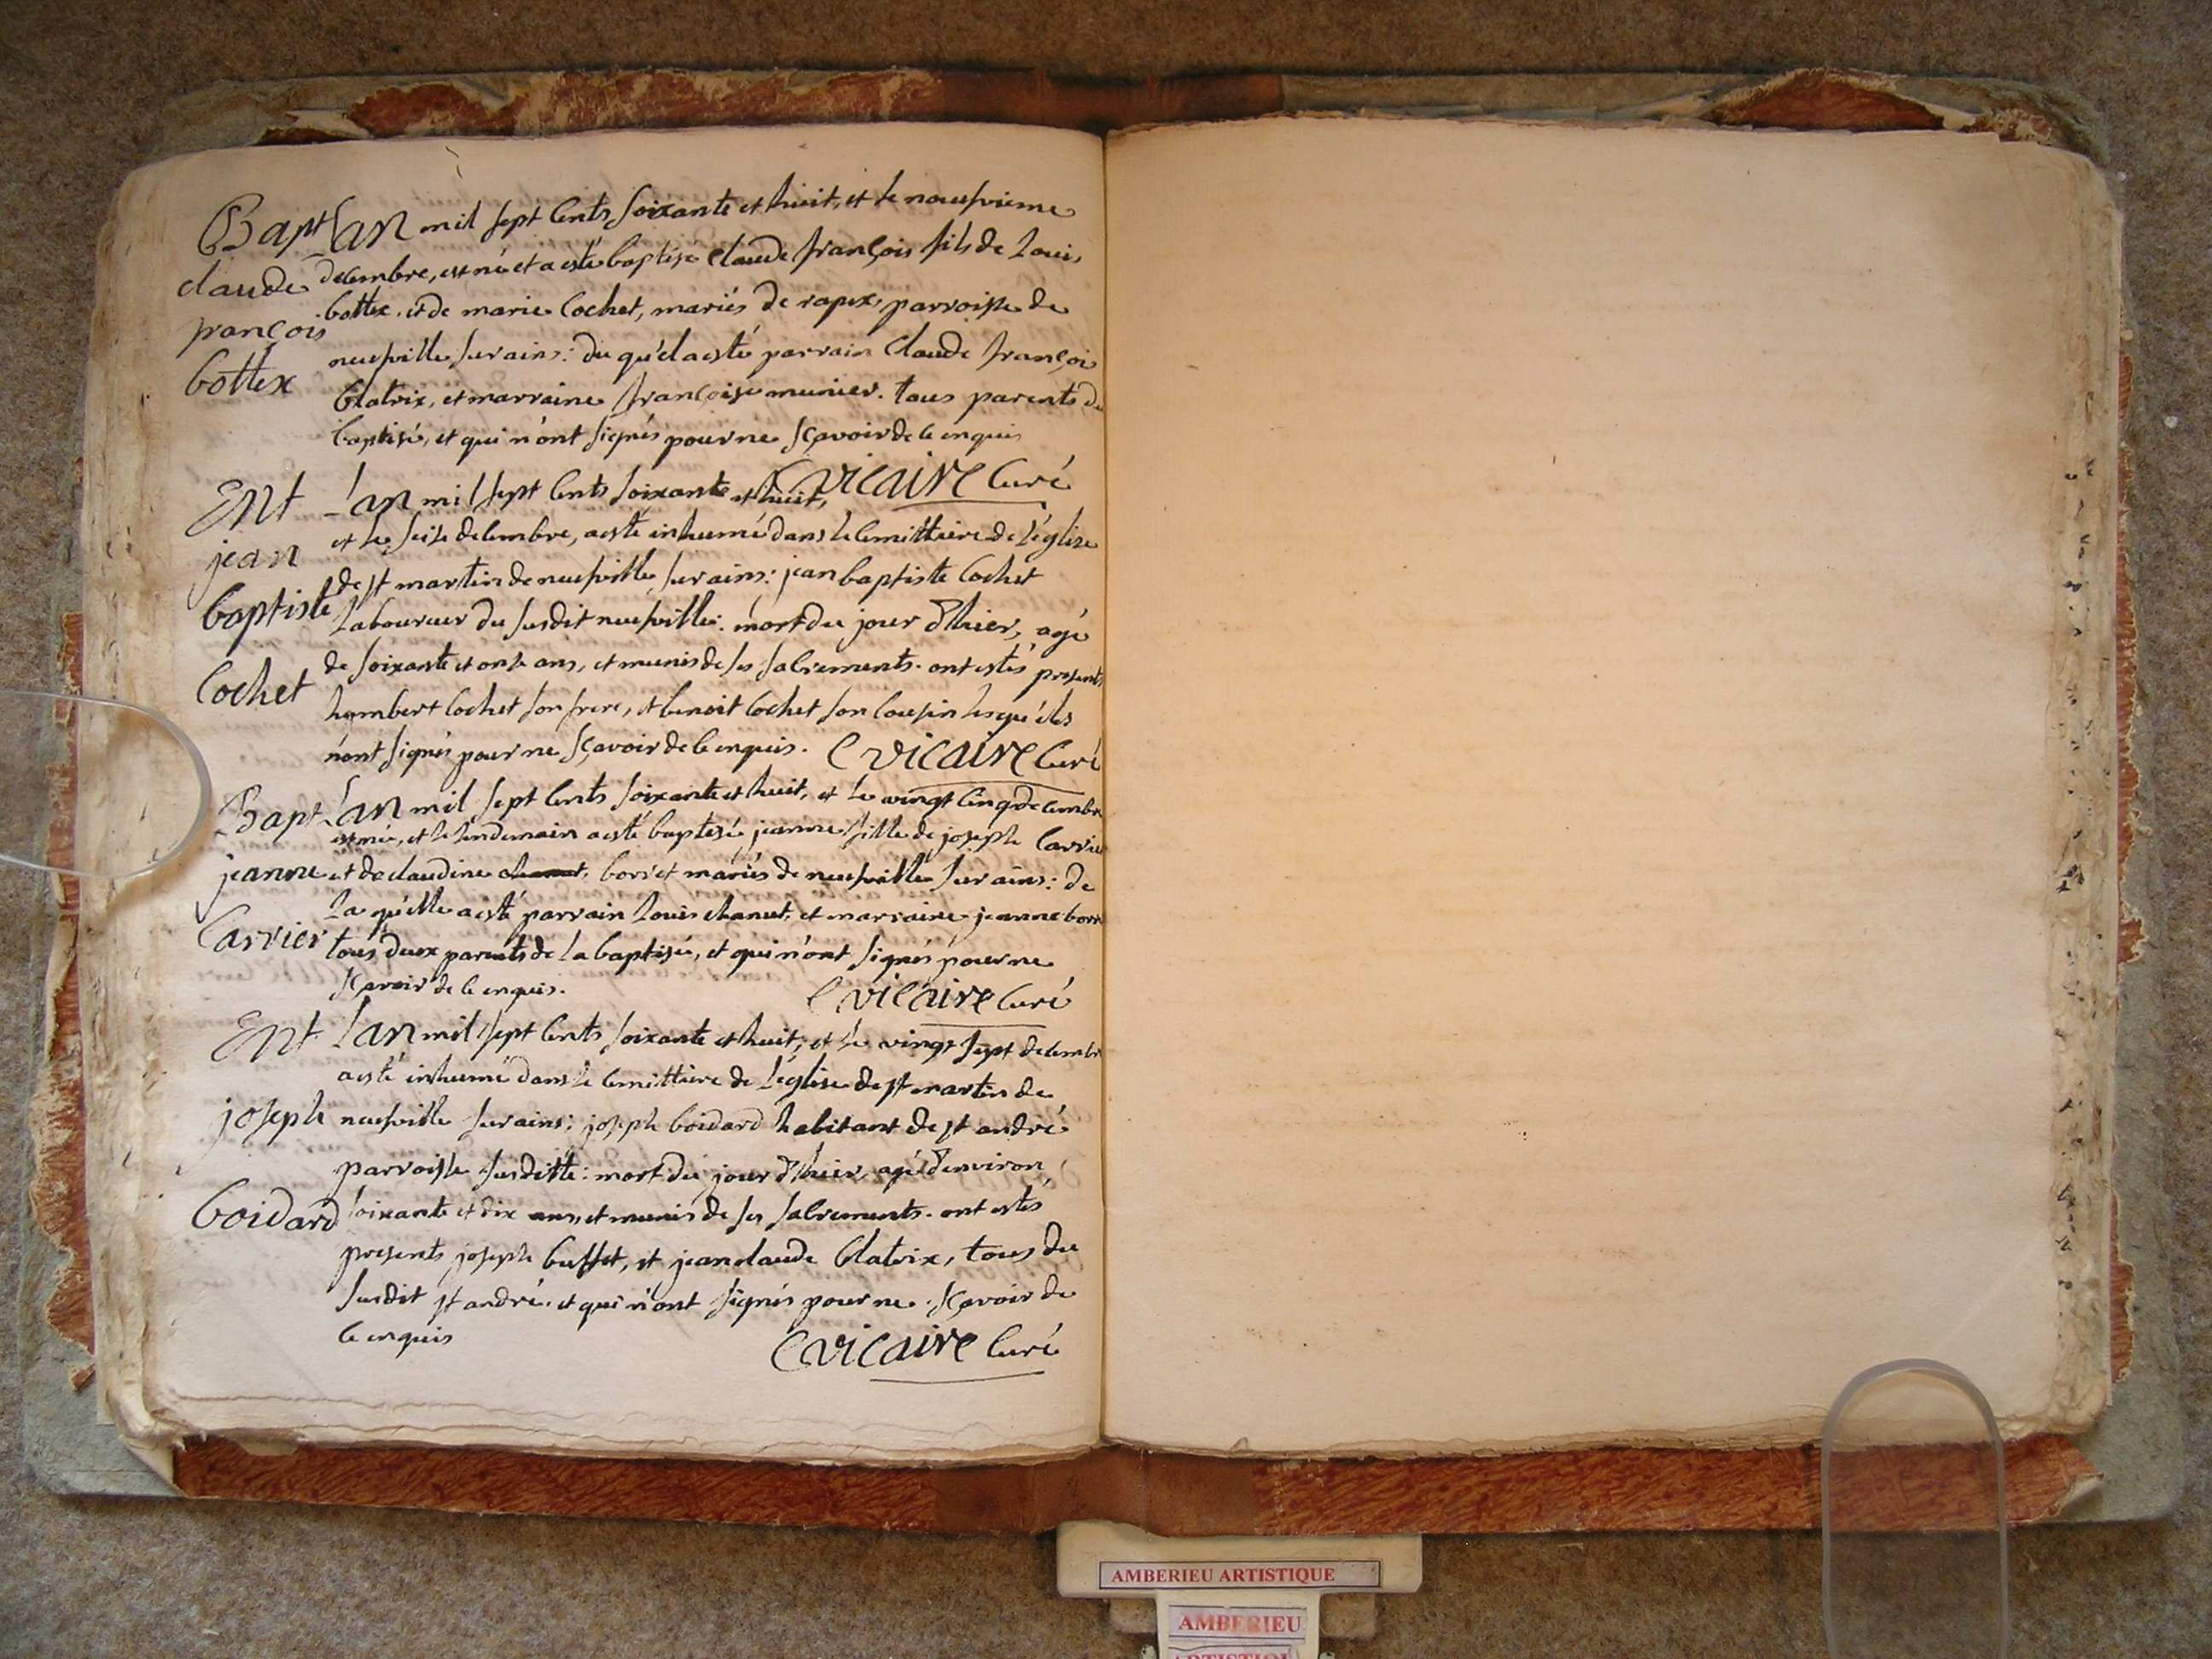 Bapt Lan mil sept cents soixante et huit, et le neufvieme
claude decembre, est né et a esté baptisé claude françois fils de Louis
françois bottex, et de marie cochet, mariés de rapex, parroisse de
bottex neufville sur ains: du qu'el a esté parrain claude françois
blatrix, et marraine françoise munier. tous parents du
baptisé, et qui n'ont signés pour ne sçavoir de ce enquis
C vicaire curé
Ent Lan mil sept cents soixante et huit,
et le seize decembre, a esté inhumé dans le cemittiere de l'église
jean de st martin de neufville sur ains: jean baptiste cochet
baptiste Laboureur du susdit neufville: mort du jour d'hier, agé
de soixante et onze ans, et munis de ses sacrements. ont estés presents
cochet humbert cochet son frere, et benoit cochet son cousin lesqu'els
n'ont signés pour ne sçavoir de ce enquis. C vicaire curé
Bapt Lan mil sept cents soixante et huit, et le vingt cinq decembre
est née, et le lendemain a esté baptisée jeanne fille de joseph carrier
jeanne et de claudine borret mariés de neufville sur ains: de
la qu'elle a esté parrain Louis chanut, et marraine jeanne
carrier tous deux parents de la baptisée, et qui n'ont signés pour ne
sçavoir de ce enquis. C vicaire curé
Ent Lan mil sept cents soixante et huit, et le vingt sept decembre
a esté inhumé dans le cemittiere de l'église de st martin de
joseph neufville sur ains: joseph boidard habitant de st andré
parroisse susditte: mort du jour d'hier, agé d'environ
boidard soixante et dix ans, et munis de ses sacrements. ont estés
presents joseph buffet, et jean claude blatrix, tous du
susdit st andré, et qui n'ont signés pour ne sçavoir de
ce enquis C vicaire curé
AMBERIEU ARTISTIQUE
AMBERIEU
ARTISTIQUE